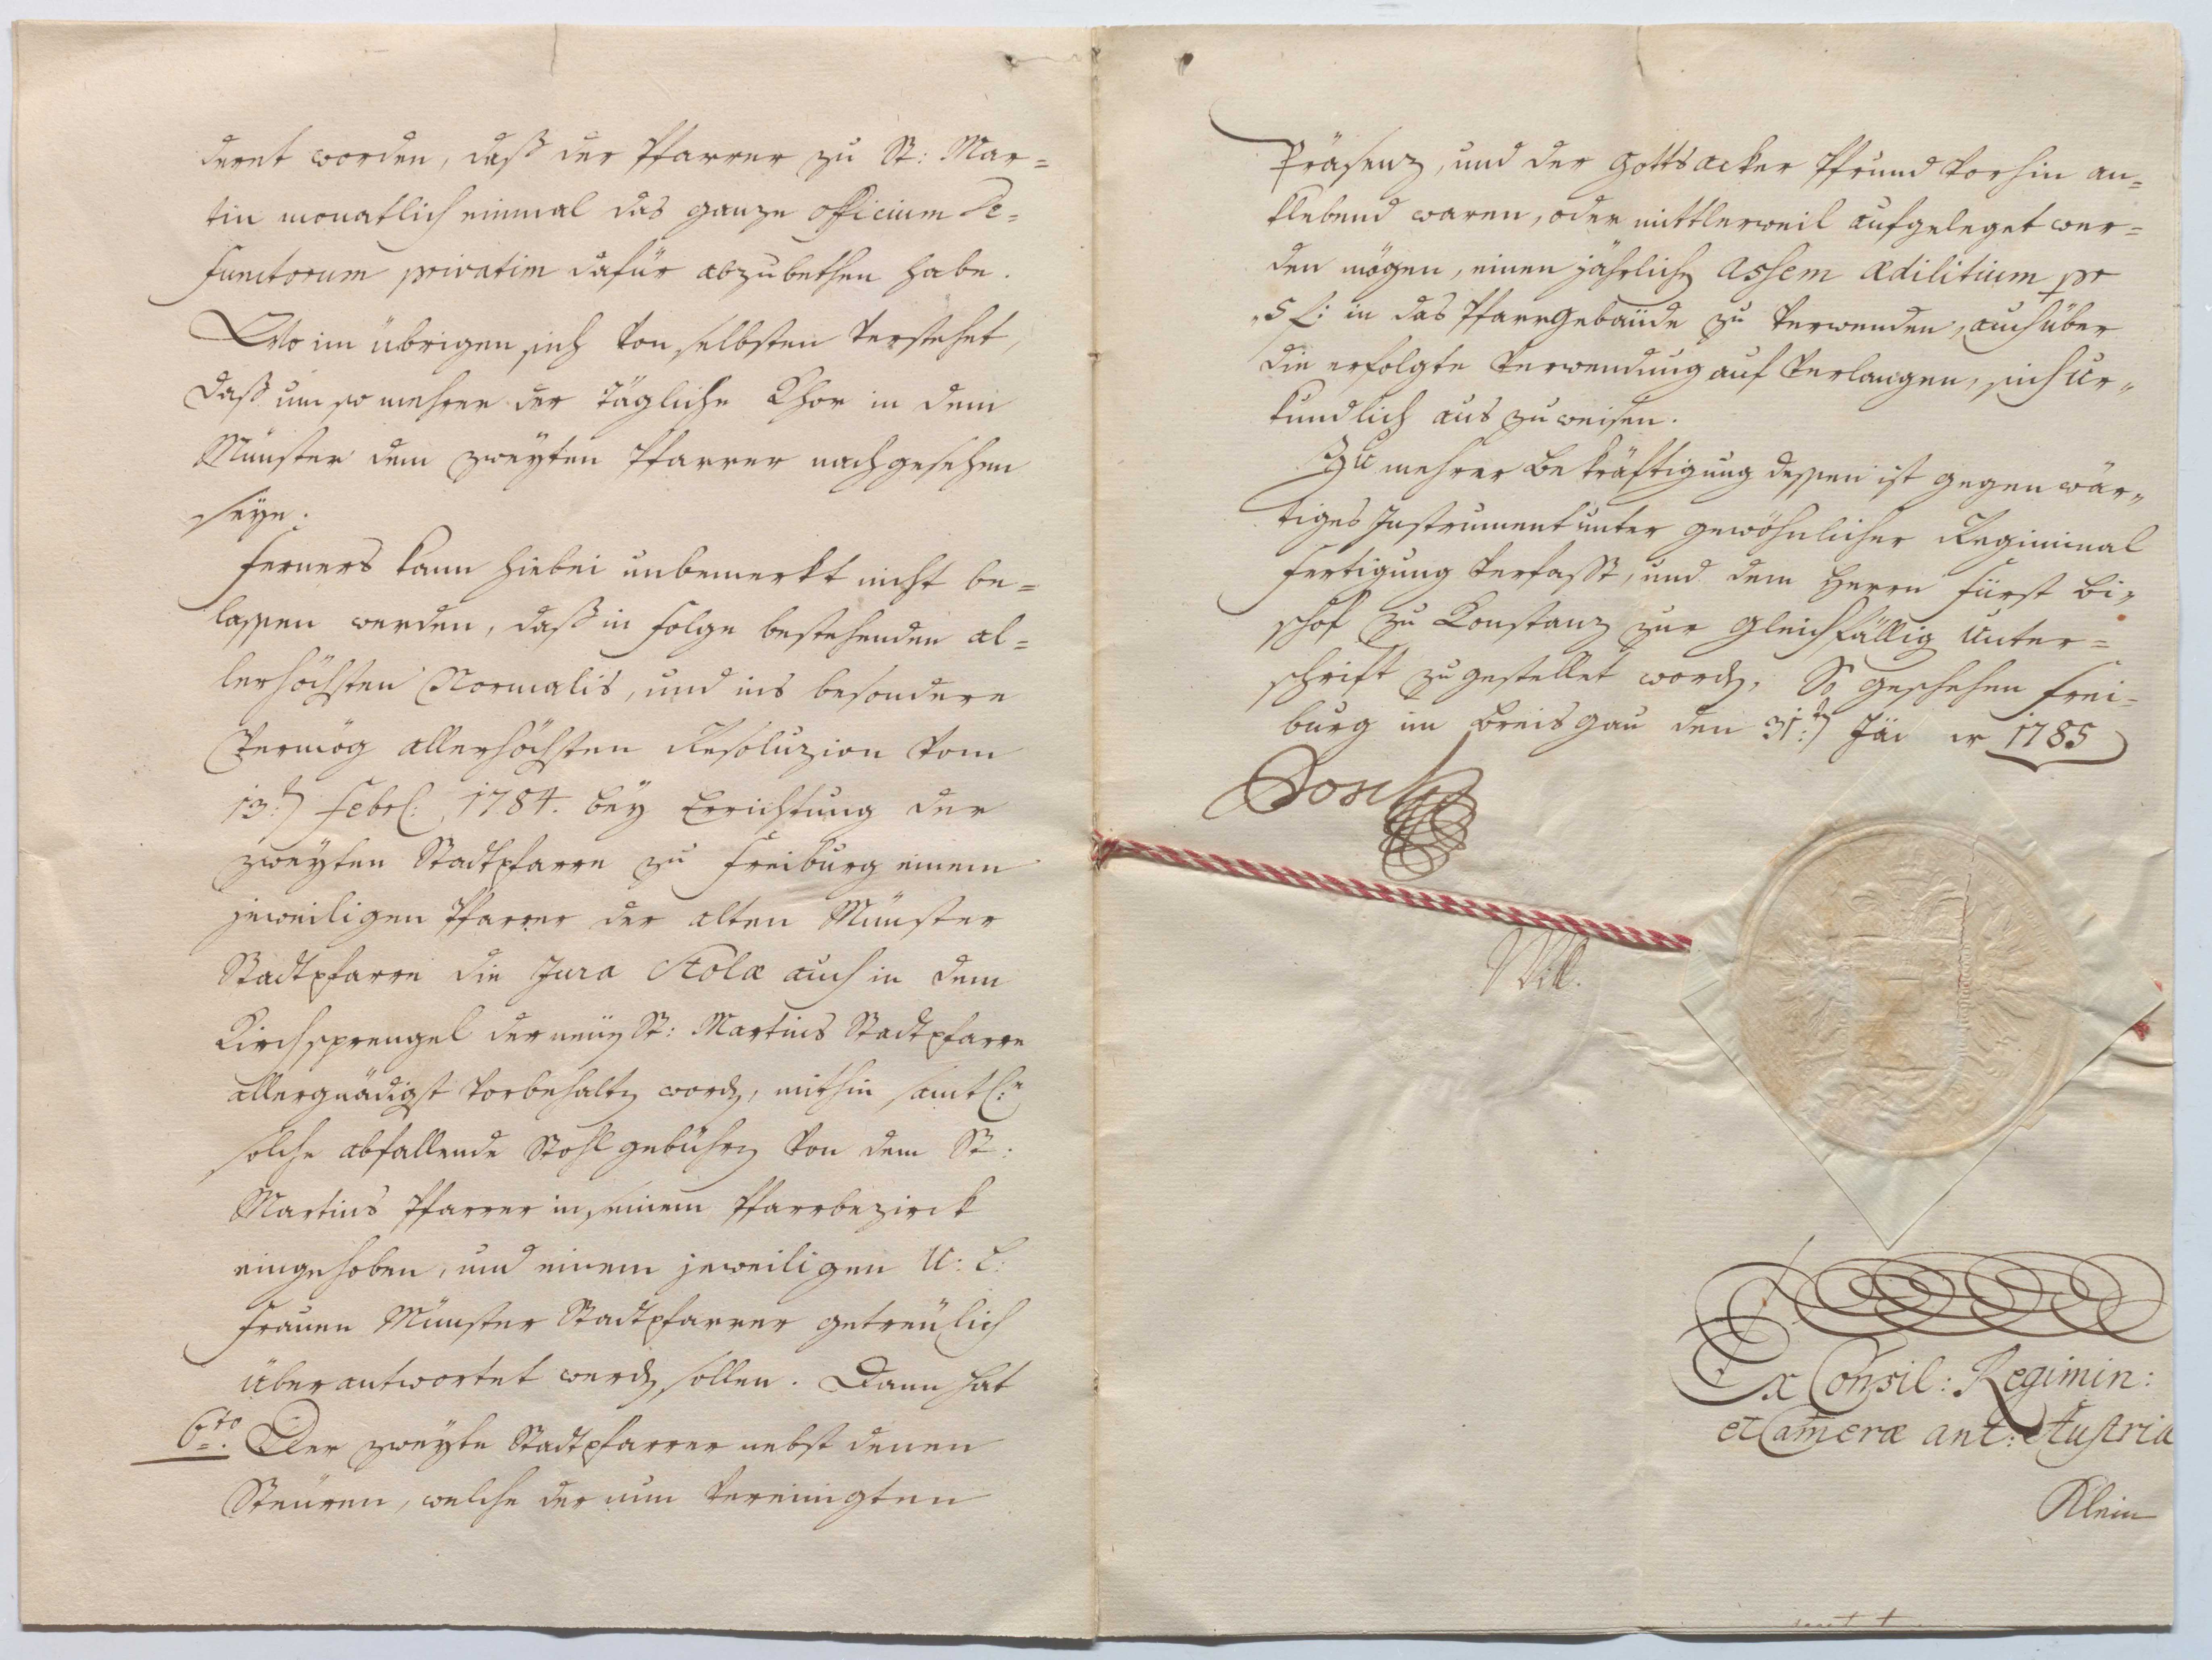 deret worden, daß der Pfarrer zu St: Mar=
tin monatlich einmal das ganze officium De=
functorum privatim dafür abzubethen habe.
Wo im übrigen sich von selbsten verstehet,
daß um so mehrer der tägliche Chor in dem
Münster dem zweyten Pfarrer nachgesehen
seye.
Ferners kann hiebei unbemerkt nicht be=
lassen werden, daß in Folge bestehenden al=
lerhöchsten Normalis, und ins besondere
Vermög allerhöchsten Resoluzion vom
13:n Febr: 1784. bey Errichtung der
zweyten Stadtpfarre zu Freiburg einem
jeweiligen Pfarrer der alten Münster
Stadtpfarre die Jura Stolæ auch in dem
Kirchsprengel der neüen St: Martins Stadtpfarre
allergnädigst vorbehalten worden, mithin samtl:e
solche abfallende Stohlgebühren von dem St:
Martins Pfarrer in seinem Pfarrbezirck
eingehoben, und einem jeweiligen U: L:
Frauen Münster Stadtpfarrer getreülich
überantwortet werden sollen. Dann hat
6to. Der zweyte Stadtpfarrer nebst denen
Steüren, welche der nun vereinigten
Präsenz, und der Gottsacker Pfrund vorhin an=
klebend waren, oder mittlerweil aufgeleget wer=
den mögen, einen jährlichen Assem Ædilitium pr
5 f: in das Pfarrgebaüde zu verwenden, auch über
die erfolgte Verwendung auf Verlangen, sich ur„
kundlich aus zu weisen.
Zu mehrer Bekräftigung dessen ist gegenwär„
tiges Instrument unter gewöhnlicher Regiminal
Fertigung verfasst, und dem Herrn Fürst Bi„
schof zu Konstanz zur gleichfällig Unter=
schrift zugestellet worden. So geschehen Frei=
burg im Breisgau den 31:n Jä er 1785
Will.
Ex Consil: Regimin:
et Cameræ ant: Austria
Klein